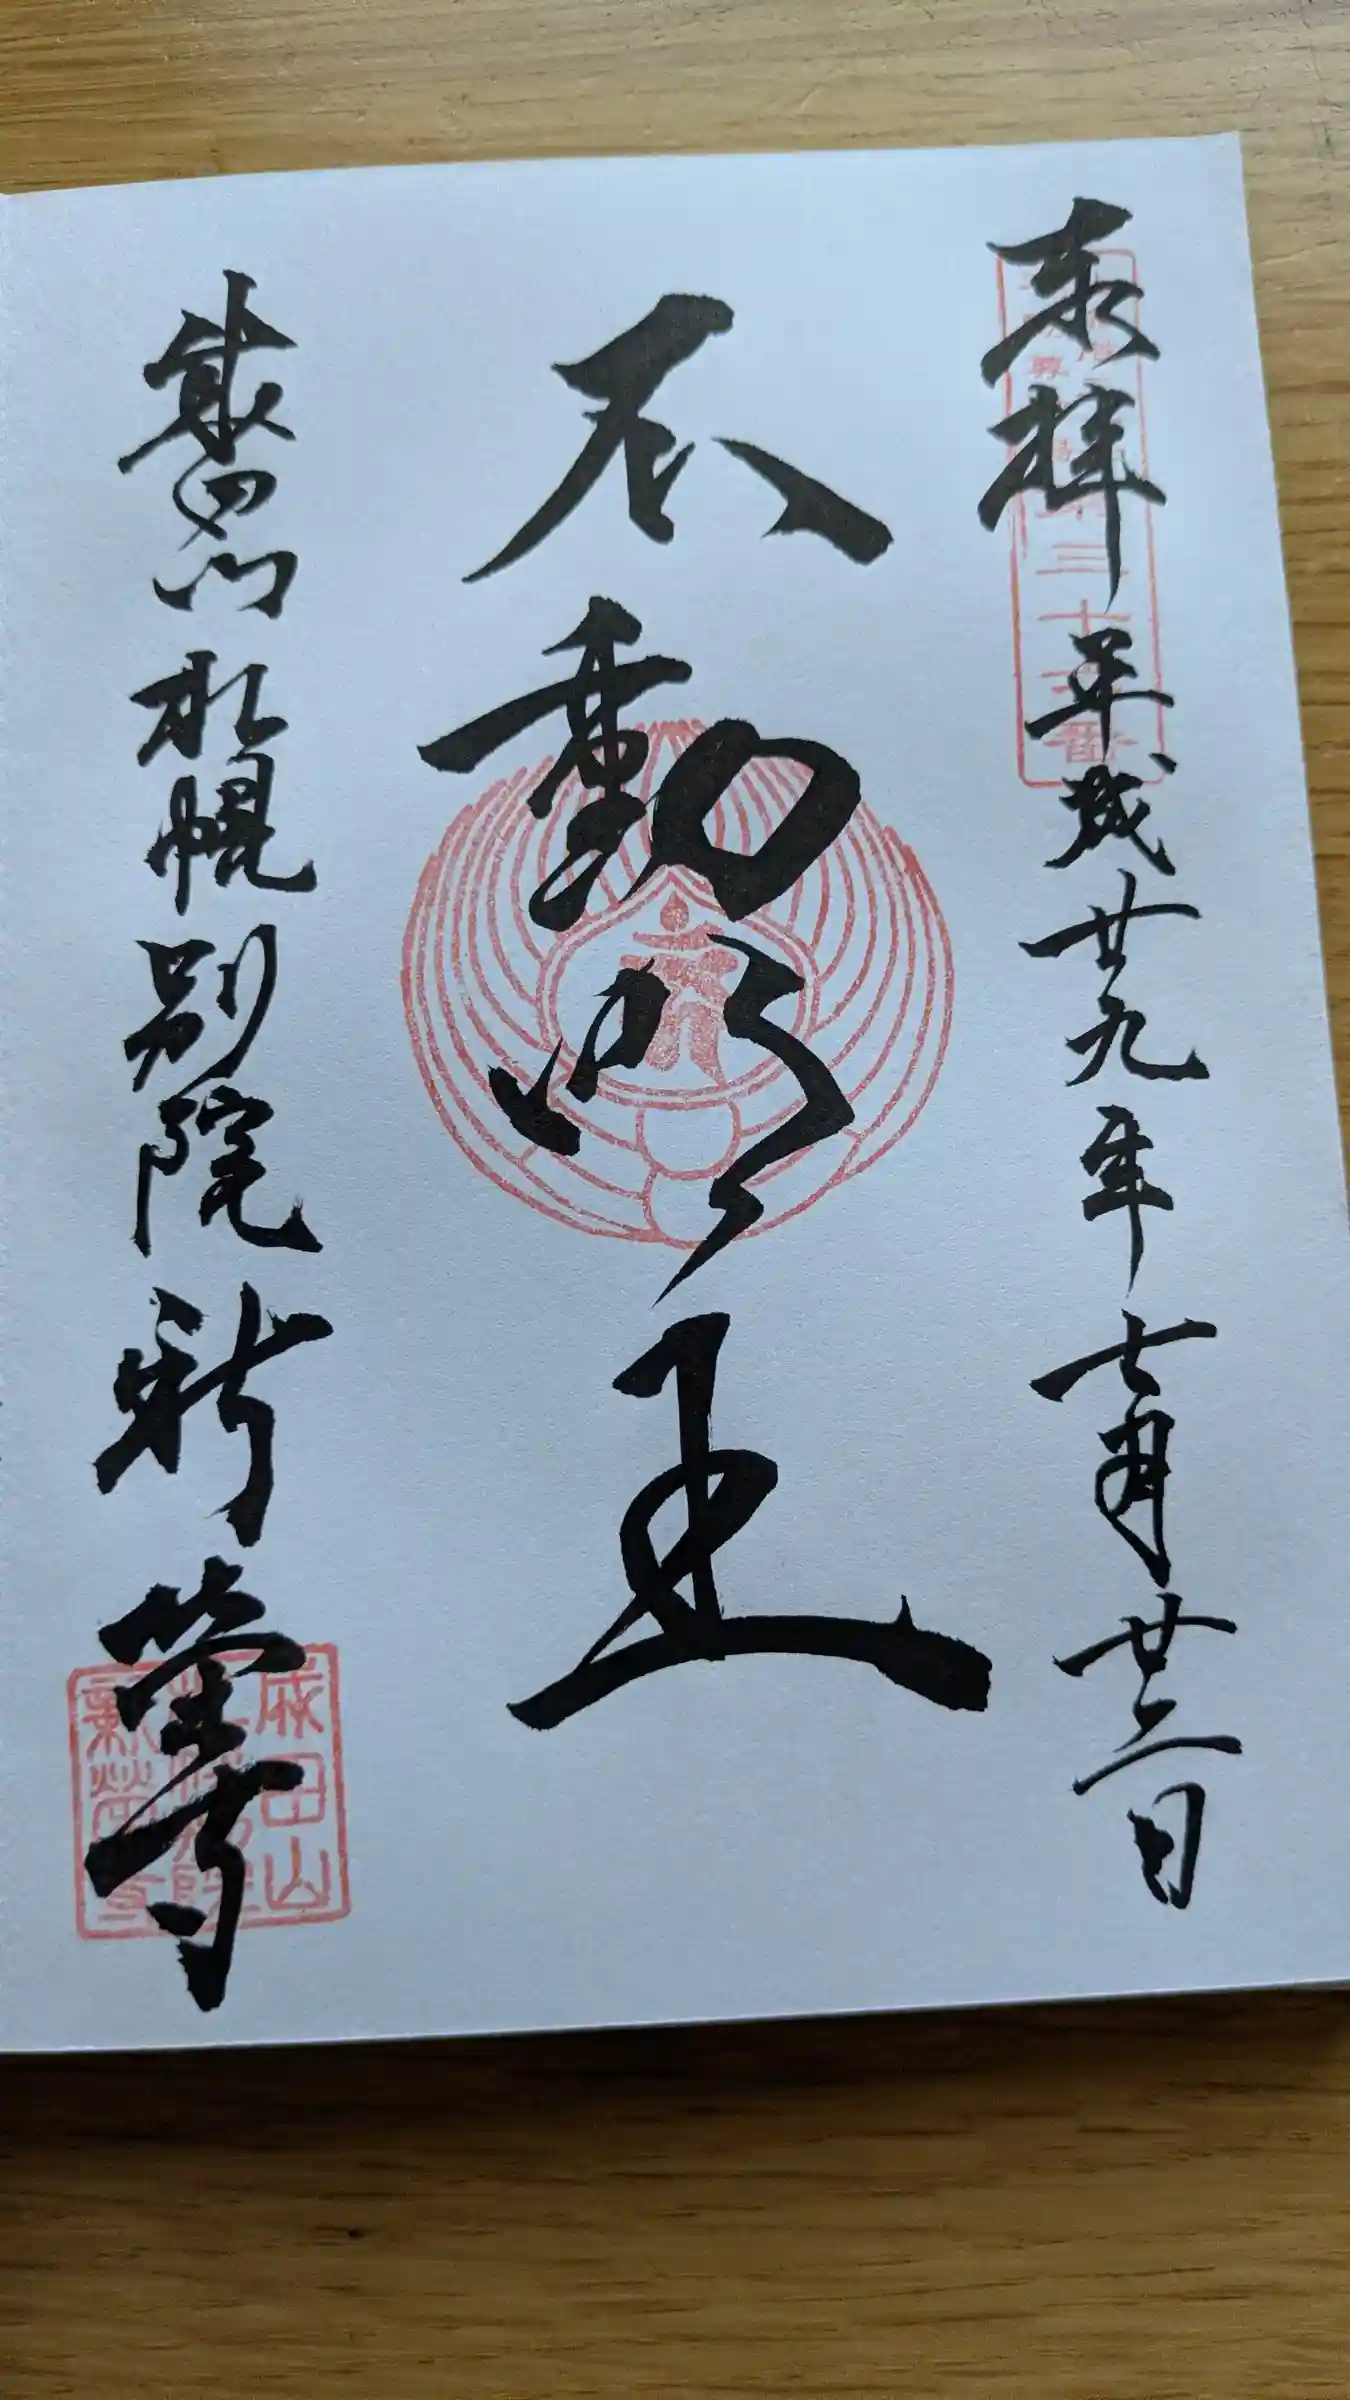 奉拝 平成廿九年七月廿二日
不動明王
成田山 札幌別院 新栄寺
第三十三番
成田山
札幌別院
新榮寺